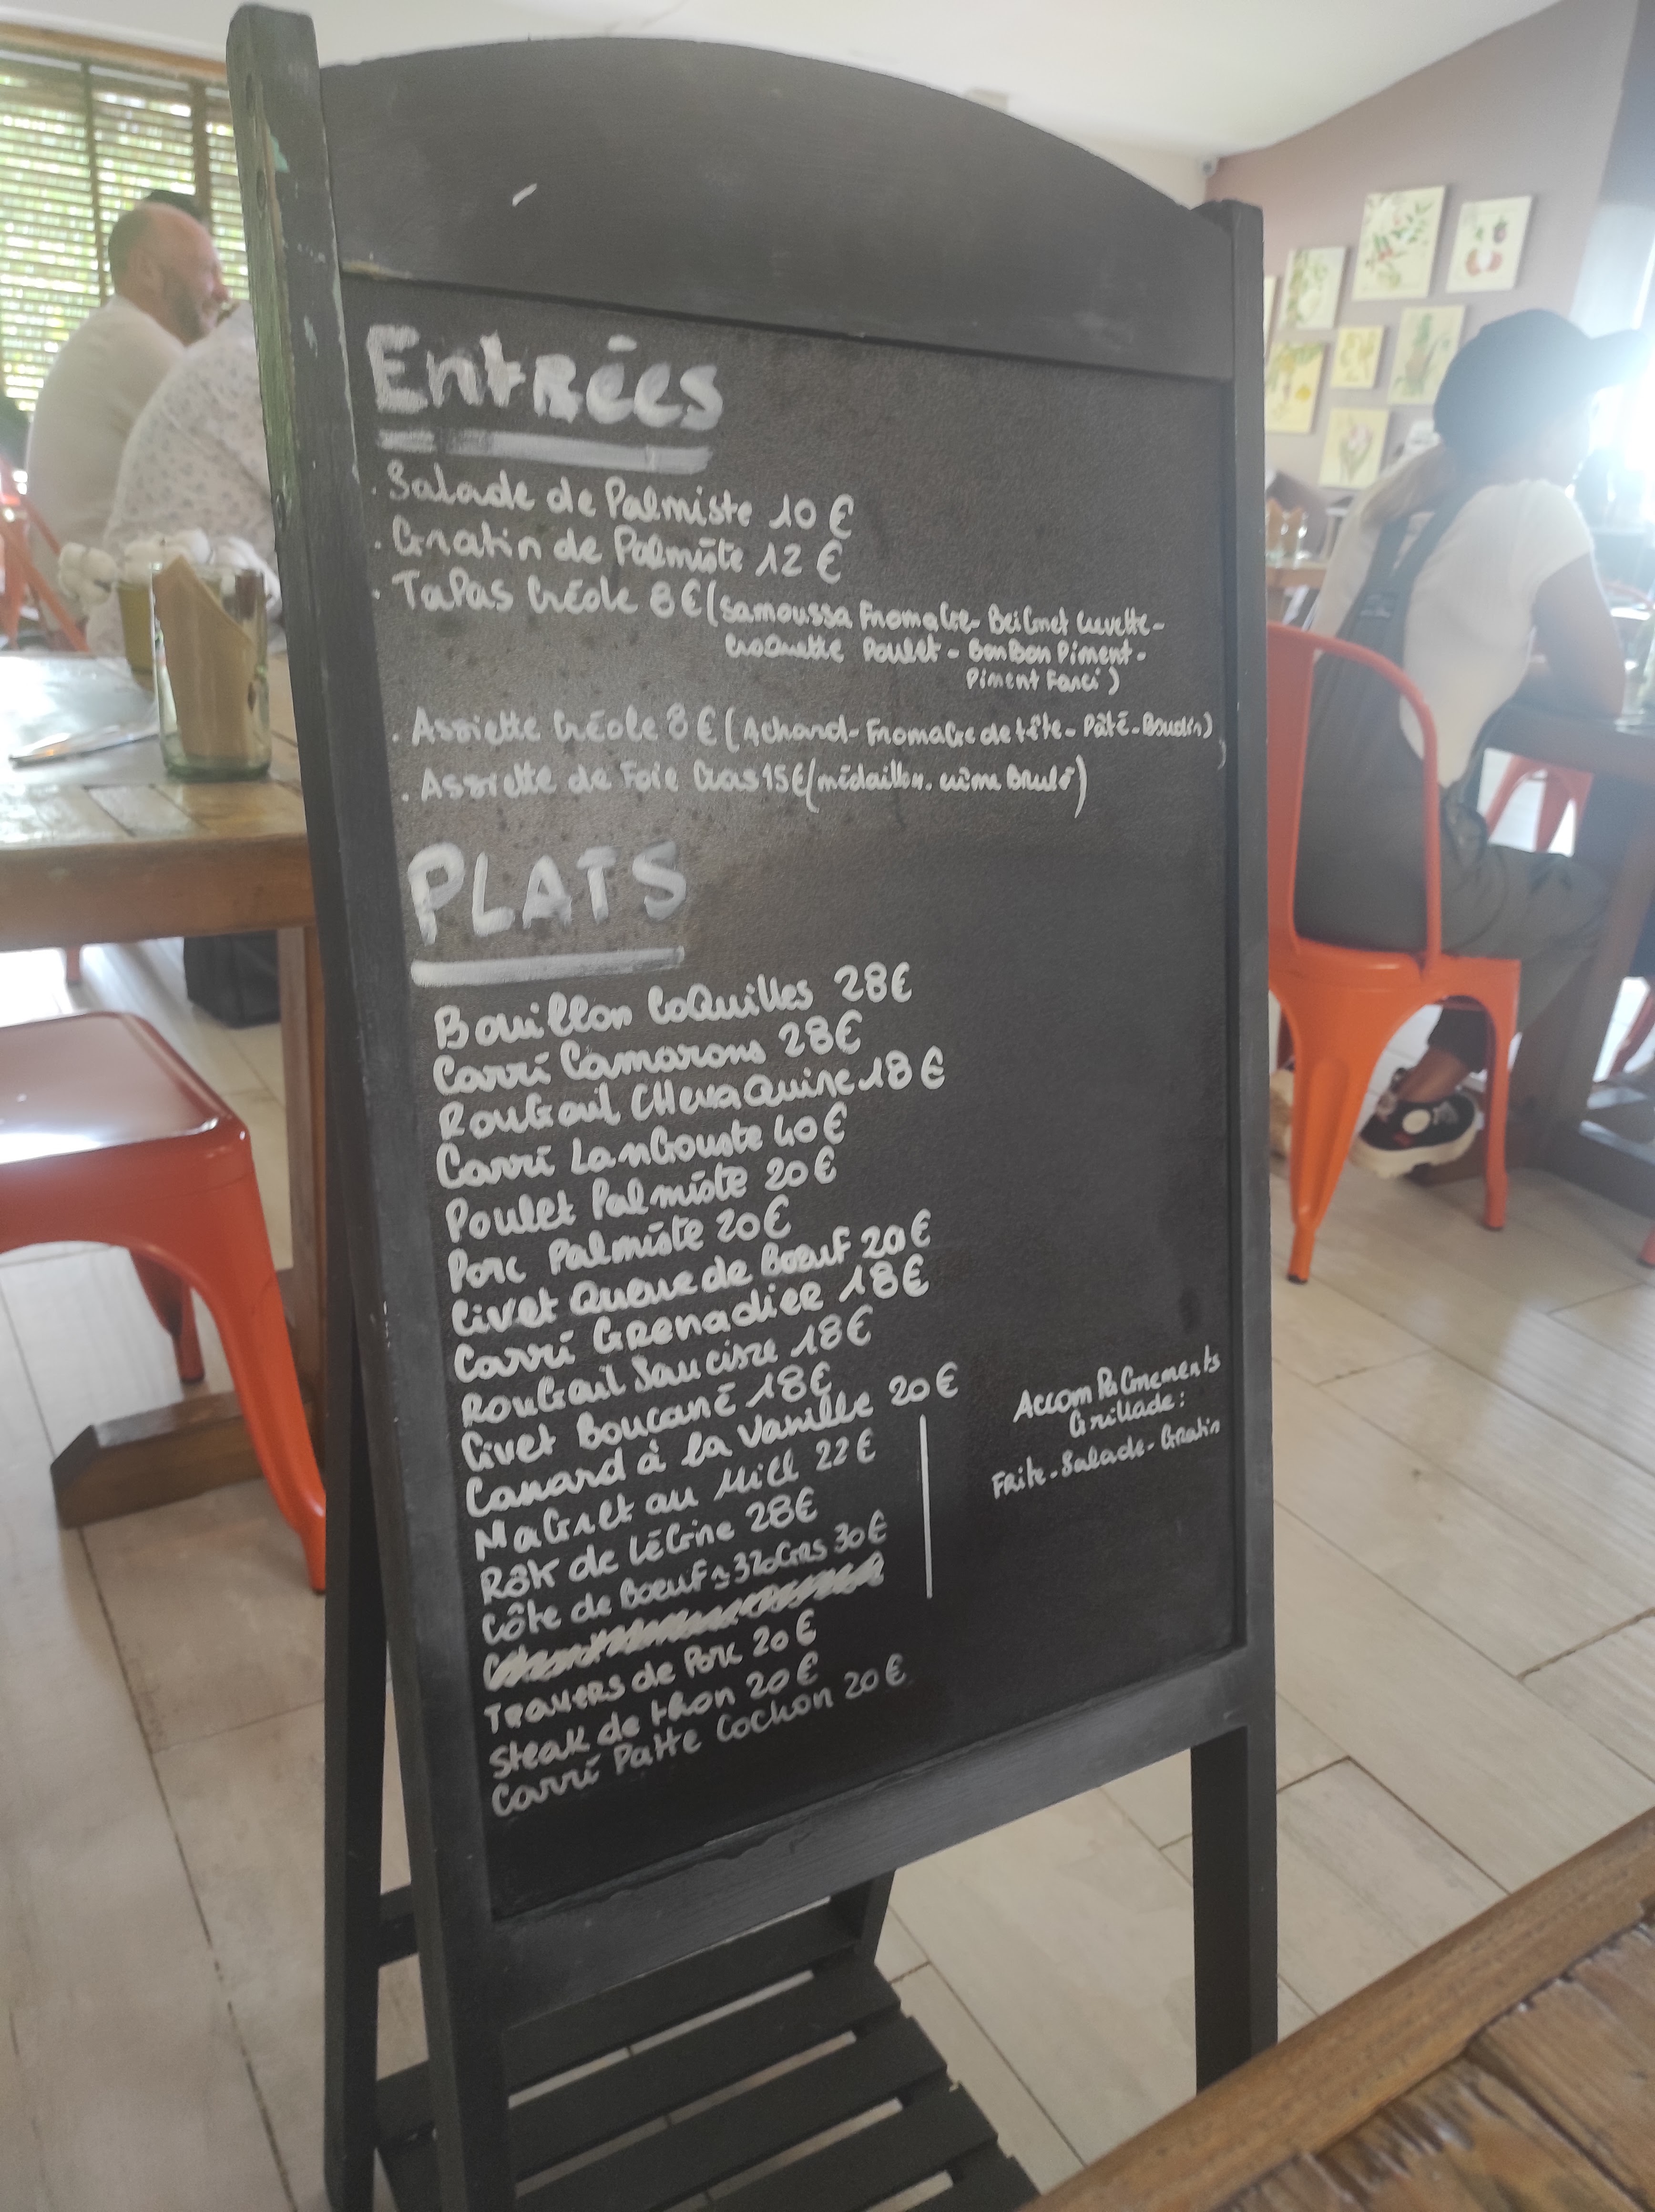 Entrées
. Salade de Palmiste 10 €
. Gratin de Palmiste 12 €
. Tapas Créole 8 € (Samoussa Fromage - Beignet Crevette -
Croquette Poulet - Bonbon Piment -
Piment Farci)
. Assiette Créole 8 € (Achard - Fromage de tête - Pâté - Boudin)
. Assiette de Foie Gras 15 € (médaillon, crème Brulé)
PLATS
Bouillon Coquilles 28 €
Carri Camarons 28 €
Rougail Chevaquine 18 €
Carri Langouste 40 €
Poulet Palmiste 20 €
Porc Palmiste 20 €
Civet Queue de Boeuf 20 €
Carri Grenadier 18 €
Rougail Saucisse 18 €
Civet Boucané 18 €
Canard à la Vanille 20 €
Magret au Miel 22 €
Rôti de Légine 28 €
Côte de Boeuf ≃ 320Grs 30 €
Travers de Porc 20 €
Steak de thon 20 €
Carri Patte Cochon 20 €
Accompagnements
Grillade :
Frite - Salade - Gratin